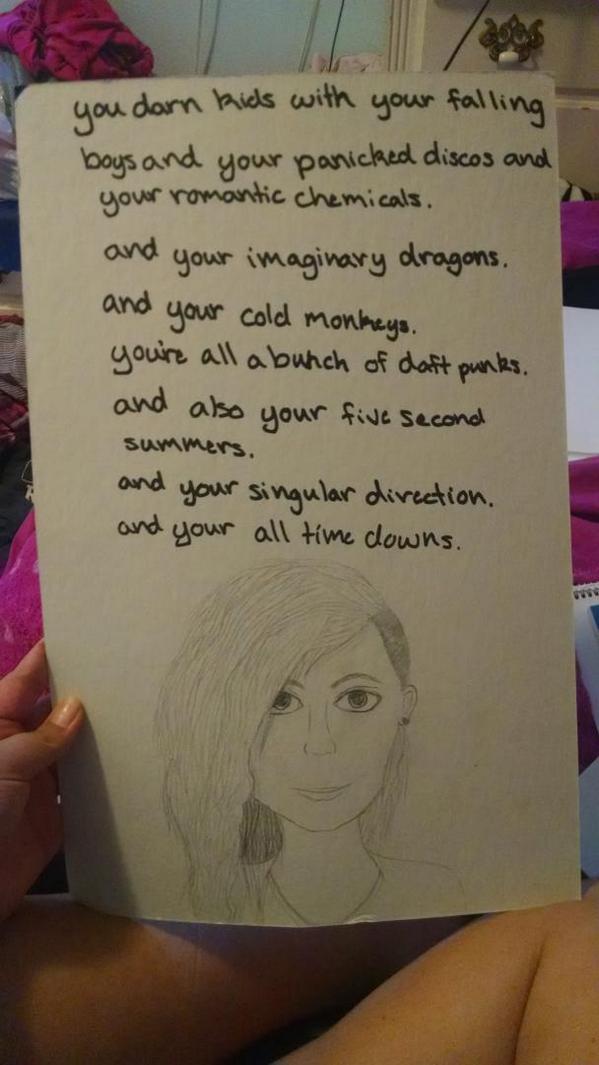 you darn kids with your falling
boys and your panicked discos and
your romantic chemicals.
and your imaginary dragons.
and your cold monkeys.
you're all a bunch of daft punks.
and also your five second
summers.
and your singular direction.
and your all time downs.